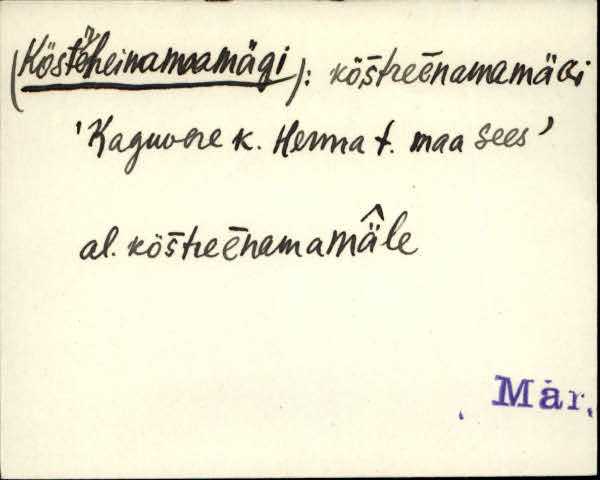 (Köstřiheinamaamägi): kös̄treēnamamäGi
'Kaguvere k. Herma t. maa sees'
al. kös̄treēnamamäle
Mar.